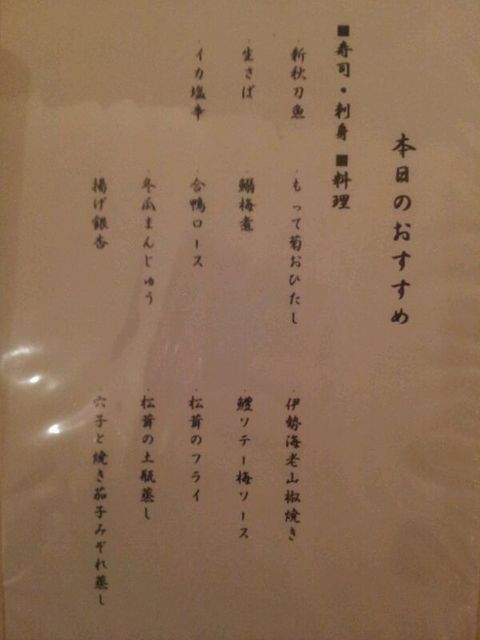 本日のおすすめ
■寿司・刺身
・新秋刀魚
・生さば
・イカ塩辛
■料理
・もって菊おひたし
・鰯梅煮
・合鴨ロース
・冬瓜まんじゅう
・揚げ銀杏
・伊勢海老山椒焼き
・鱧ソテー梅ソース
・松茸のフライ
・松茸の土瓶蒸し
・穴子と焼き茄子みぞれ蒸し